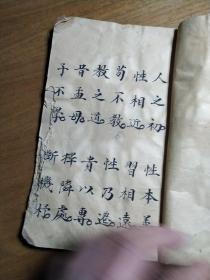 人之初 性本善
性相近 習相遠
苟不教 性乃遷
教之道 貴以專
昔孟母 擇隣處
子不學 斷機杼